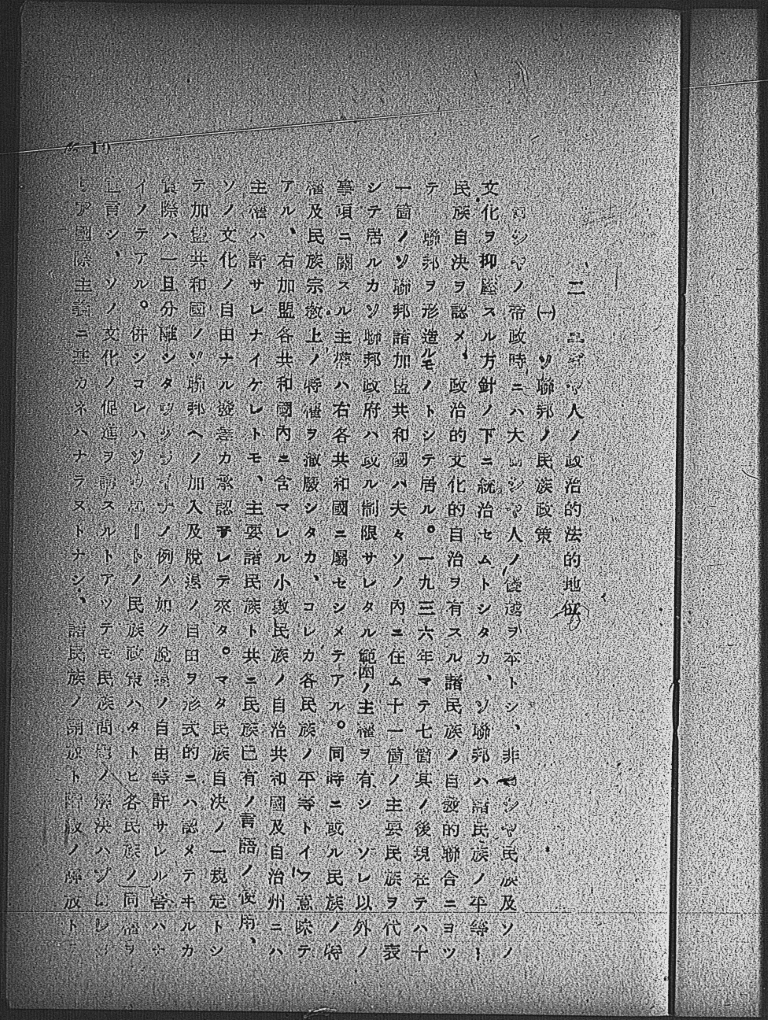 二 人ノ政治的法的地位
㈠ ソ聯邦ノ民族政策
ロシヤノ帝政時ニハ大ロシヤ人ノ優越ヲ本トシ、非ロシヤ民族及ソノ
文化ヲ抑壓スル方針ノ下ニ統治セムトシタカ、ソ聯邦ハ諸民族ノ平等ト
民族自決ヲ認メ、政治的文化的自治ヲ有スル諸民族ノ自發的聯合ニヨツ
テ 聯邦ヲ形造ルモノトシテ居ル。一九三六年マテ七箇其ノ後現在テハ十
一箇ノソ聯邦諸加盟共和國ハ夫々ソノ內ニ在ム十一箇ノ主要民族ヲ代表
シテ居ルカソ聯邦政府ハ或ル制限サレタル範囲ノ主權ヲ有シ ソレ以外ノ
事項ニ關スル主權ハ右各共和國ニ屬セシメテアル。同時ニ或ル民族ノ特
權及民族宗敎上ノ特權ヲ撤廢シタカ、コレカ各民族ノ平等トイフ意味テ
アル、右加盟各共和國內ニ含マレル小數民族ノ自治共和國及自治州ニハ
主權ハ許サレナイケレトモ、主要諸民族ト共ニ民族固有ノ言語ノ使用、
ソノ文化ノ自由ナル發達カ承認サレテ來タ。マタ民族自決ノ一規定トシ
テ加盟共和國ノソ聯邦ヘノ加入及脫退ノ自由ヲ形式的ニハ認メテヰルカ
實際ハ一旦分離シタ ノ例ノ如ク脫退ノ自由等許サレル筈ハナ
イノテアル。併シコレハソウエートノ民族政策ハタトヒ各民族ノ同權ヲ
宣言シ、ソノ文化ノ促進ヲ謀スルトアツテモ民族問題ノ解決ハプロレ
タリア國際主義ニ基カネハナラヌトナシ、諸民族ノ開放ト階級ノ解放ト
19